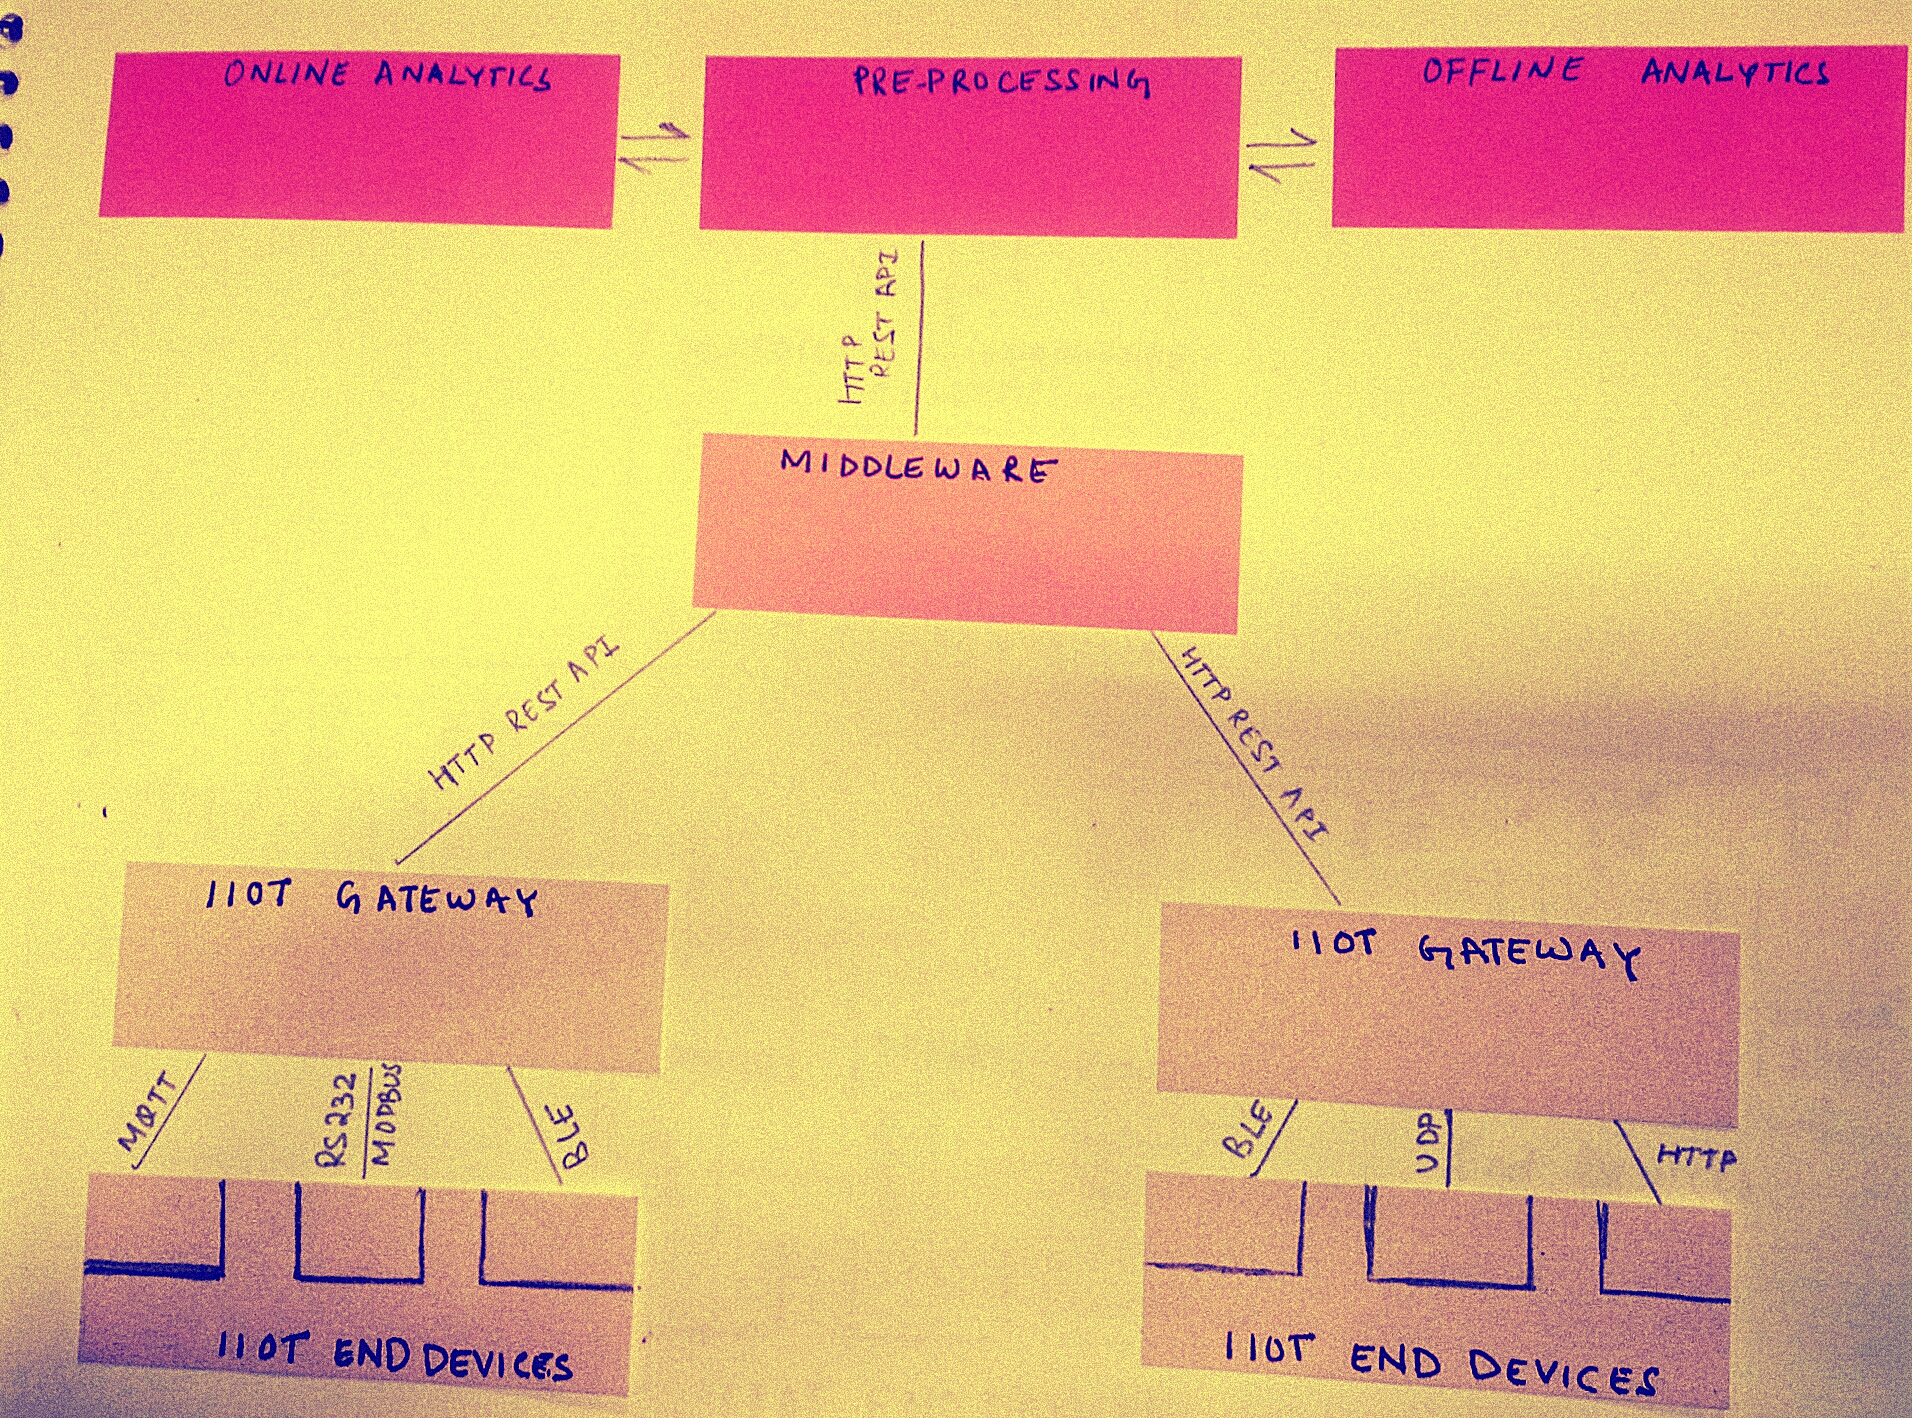 ONLINE ANALYTICS
PRE-PROCESSING
OFFLINE ANALYTICS
HTTP
REST API
MIDDLEWARE
HTTP REST API
HTTP REST API
IIOT GATEWAY
IIOT GATEWAY
MQTT
RS232
MODBUS
BLE
BLE
UDP
HTTP
IIOT END DEVICES
IIOT END DEVICES